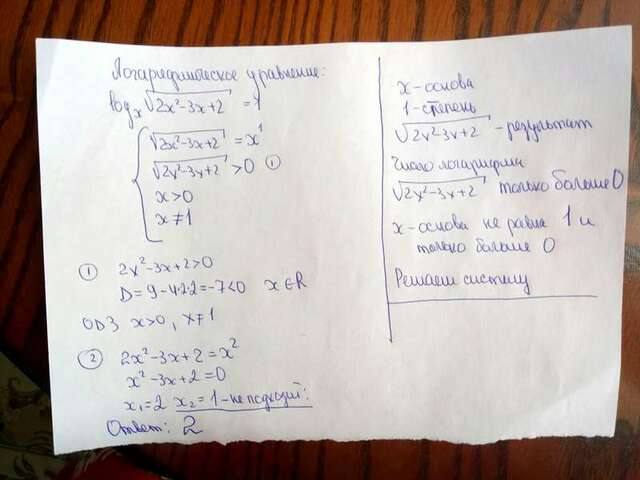 Логарифмическое уравнение:
log_x √(2x²-3x+2) = 1
√(2x²-3x+2) = x¹
√(2x²-3x+2) > 0 ①
x>0
x≠1
① 2x²-3x+2>0
D = 9-4·2·2=-7<0 x∈R
ОДЗ x>0, x≠1
② 2x²-3x+2=x²
x²-3x+2=0
x₁=2 x₂=1-не подходит:
Ответ: 2
x-основа
1-степень
√(2x²-3x+2) - результат
Число логарифма
√(2x²-3x+2) только больше 0
x-основа не равна 1 и
только больше 0
Решаем систему